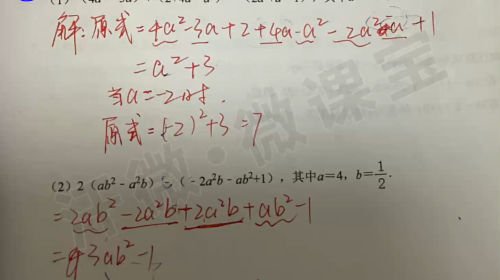 解：原式=4a²-3a+2+4a-a²-2a²-a+1
=a²+3
当a=-2时.
原式=(-2)²+3=7
(2) 2(ab²-a²b)-(-2a²b-ab²+1)，其中a=4，b=1/2.
=2ab²-2a²b+2a²b+ab²-1
=3ab²-1
浙微·微课宝